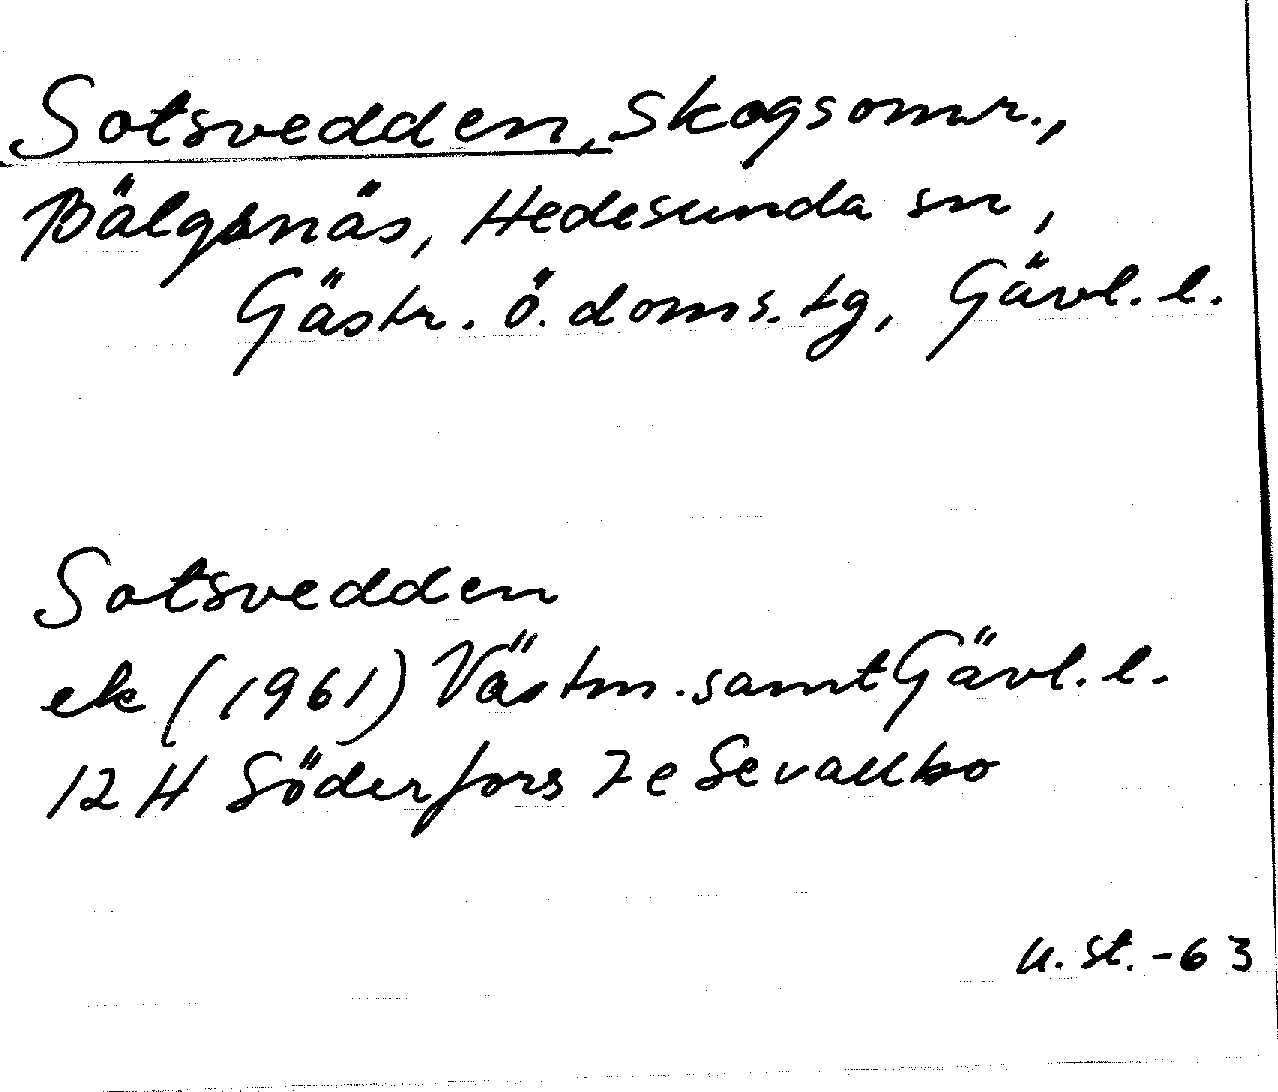 Sotsvedden, Skogsomr.,
Bälgsnäs, Hedesunda sn,
Gästr. ö. doms. tg, Gävl. l.
Sotsvedden
ek (1961) Västm. samt Gävl. l.
12 H Söderfors 7 e Sevallbo
U. St. -63